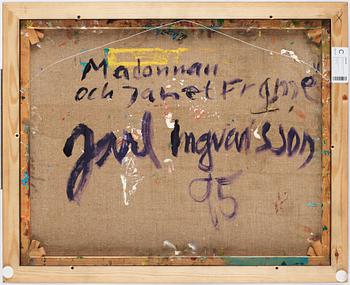 Madonnan
och Janet Frame
Jarl Ingvarsson
95